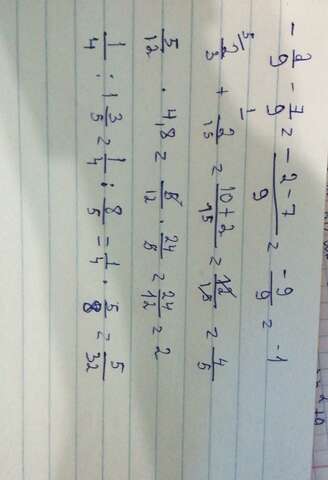 - 2/9 - 7/9 = - 2-7/9 = -9/9 = -1
5 2/3 + 1 2/15 = 10+2/15 = 12/15 = 4/5
5/12 · 4,8 = 5/12 · 24/5 = 24/12 = 2
1/4 : 1 3/5 = 1/4 : 8/5 = 1/4 · 5/8 = 5/32